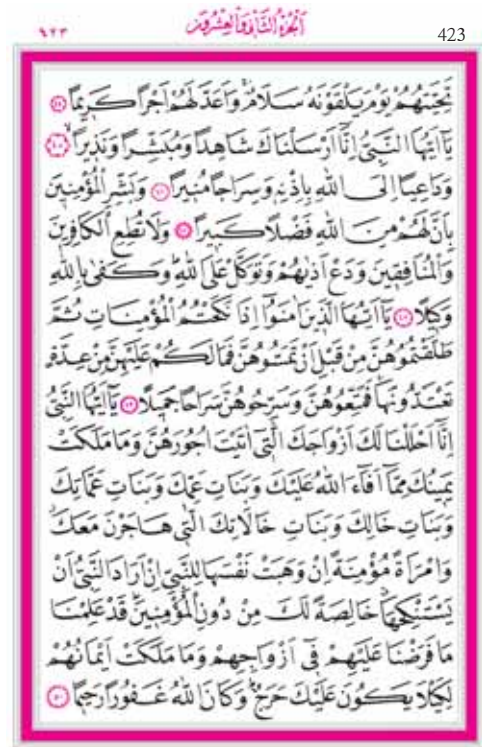 ٤٢٣ اَلْجُزْءُ الثَّانِي وَالْعِشْرُونَ 423
تَحِيَّتُهُمْ يَوْمَ يَلْقَوْنَهُ سَلَامٌ وَاَعَدَّ لَهُمْ اَجْرًا كَرِيمًا ﴿٤٤﴾
يَٓا اَيُّهَا النَّبِيُّ اِنَّٓا اَرْسَلْنَاكَ شَاهِدًا وَمُبَشِّرًا وَنَذِيرًا ﴿٤٥﴾
وَدَاعِيًا اِلَى اللّٰهِ بِاِذْنِهِ وَسِرَاجًا مُنِيرًا ﴿٤٦﴾ وَبَشِّرِ الْمُؤْمِنِينَ
بِاَنَّ لَهُمْ مِنَ اللّٰهِ فَضْلًا كَبِيرًا ﴿٤٧﴾ وَلَا تُطِعِ الْكَافِرِينَ
وَالْمُنَافِقِينَ وَدَعْ اَذٰيهُمْ وَتَوَكَّلْ عَلَى اللّٰهِ وَكَفٰى بِاللّٰهِ
وَكِيلًا ﴿٤٨﴾ يَٓا اَيُّهَا الَّذِينَ اٰمَنُٓوا اِذَا نَكَحْتُمُ الْمُؤْمِنَاتِ ثُمَّ
طَلَّقْتُمُوهُنَّ مِنْ قَبْلِ اَنْ تَمَسُّوهُنَّ فَمَا لَكُمْ عَلَيْهِنَّ مِنْ عِدَّةٍ
تَعْتَدُّونَهَا فَمَتِّعُوهُنَّ وَسَرِّحُوهُنَّ سَرَاحًا جَمِيلًا ﴿٤٩﴾ يَٓا اَيُّهَا النَّبِيُّ
اِنَّٓا اَحْلَلْنَا لَكَ اَزْوَاجَكَ الّٰتِٓي اٰتَيْتَ اُجُورَهُنَّ وَمَا مَلَكَتْ
يَمِينُكَ مِمَّٓا اَفَٓاءَ اللّٰهُ عَلَيْكَ وَبَنَاتِ عَمِّكَ وَبَنَاتِ عَمَّاتِكَ
وَبَنَاتِ خَالِكَ وَبَنَاتِ خَالَاتِكَ الّٰتِي هَاجَرْنَ مَعَكَ
وَامْرَاَةً مُؤْمِنَةً اِنْ وَهَبَتْ نَفْسَهَا لِلنَّبِيِّ اِنْ اَرَادَ النَّبِيُّ اَنْ
يَسْتَنْكِحَهَا خَالِصَةً لَكَ مِنْ دُونِ الْمُؤْمِنِينَ قَدْ عَلِمْنَا
مَا فَرَضْنَا عَلَيْهِمْ فِٓي اَزْوَاجِهِمْ وَمَا مَلَكَتْ اَيْمَانُهُمْ
لِكَيْلَا يَكُونَ عَلَيْكَ حَرَجٌ وَكَانَ اللّٰهُ غَفُورًا رَحِيمًا ﴿٥٠﴾